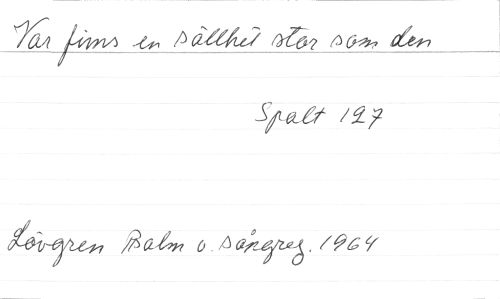 Var finns en sällhet stor som den
Spalt 127
Lövgren Psalm o. sångreg. 1964